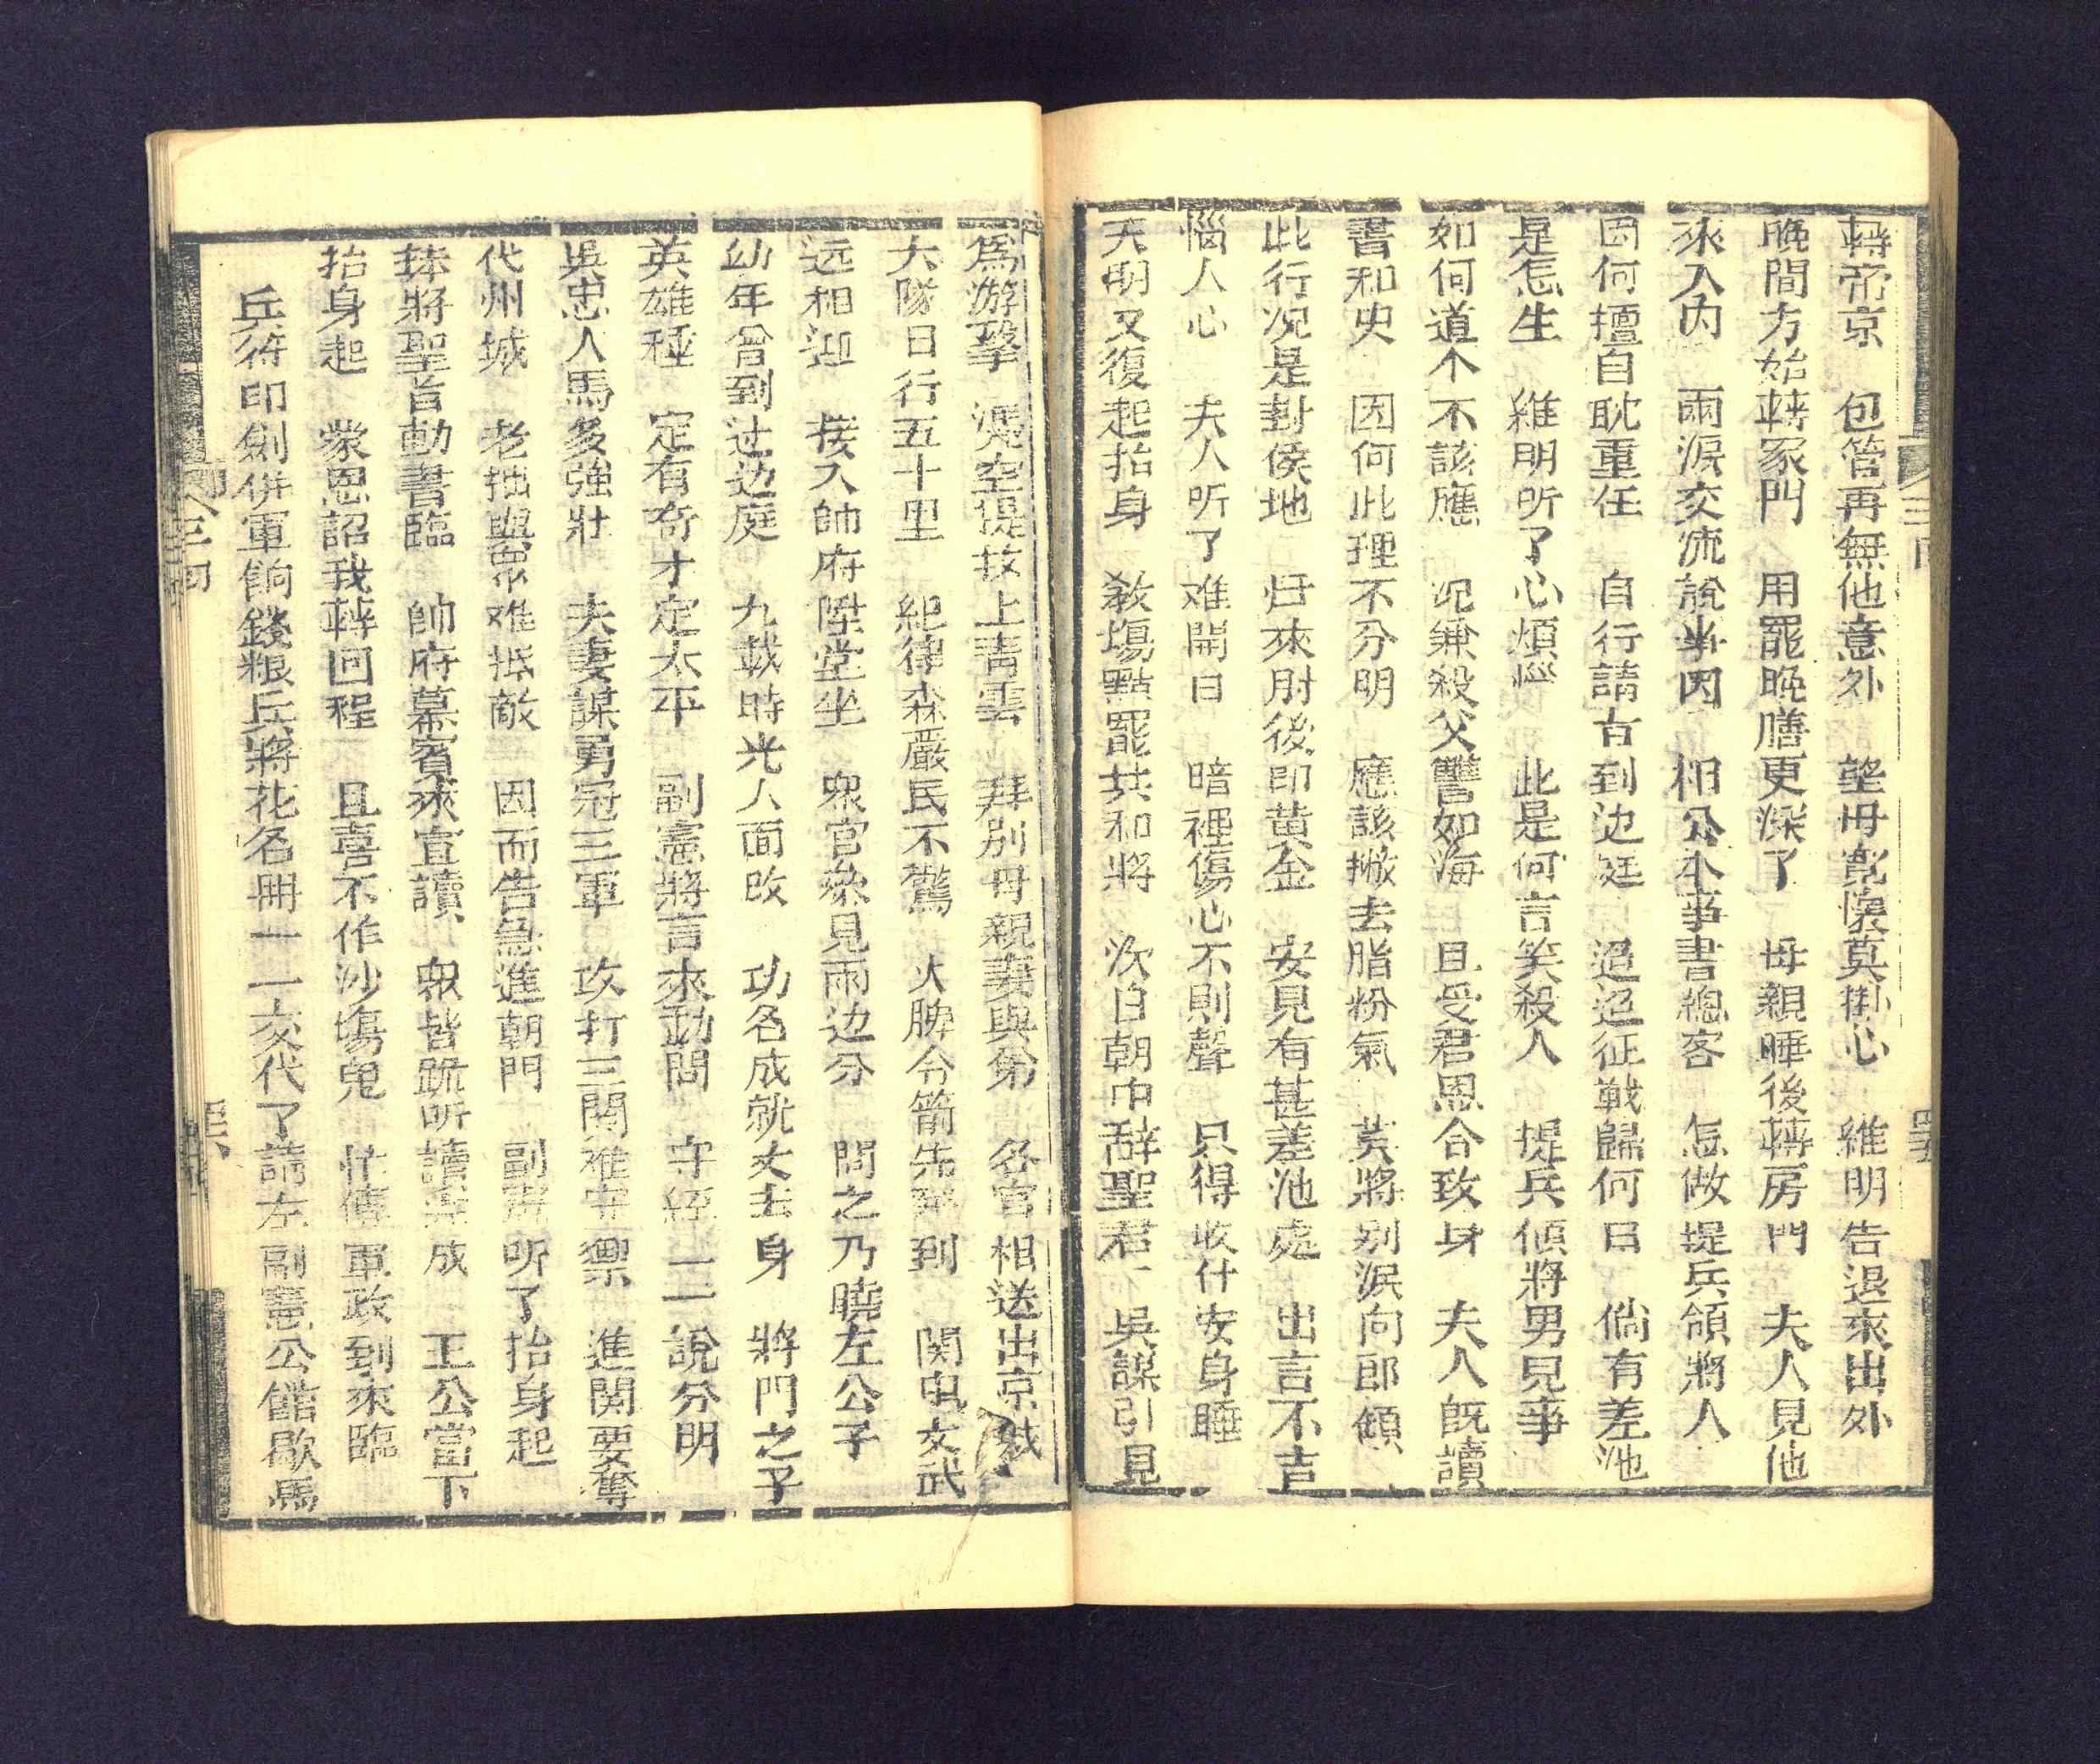 轉帝京　包管再無他意外　望母寬懷莫掛心　維明告退來出外
晚間方始轉家門　用罷晚膳更深了　母親睡後轉房門　夫人見他
來入內　兩淚交流說事因　相公本事書總客　怎做提兵領將人
因何擅自耽重任　自行請旨到边廷　迢迢征戰歸何日　倘有差池
是怎生　維明听了心煩惱　此是何言笑殺人　提兵傾將男兒事
如何道个不該應　况兼殺父讐如海　且受君恩合致身　夫人旣讀
書和史　因何此理不分明　應該撇去脂粉氣　莫將别淚向郎傾
此行况是封侯地　归來肘後印黄金　安見有甚差池處　出言不吉
惱人心　夫人听了难開口　暗裡傷心不則聲　只得收什安身睡
天明又復起抬身　敎塲點罷共和將　次日朝中辞聖君　吳謀引見
爲游擊　憑空提拔上青雲　拜别母親妻與弟　各官相送出京城
大隊日行五十里　紀律森嚴民不驚　火牌令箭先到　関中文武
远相迎　接入帥府陞堂坐　眾官叅見兩边分　問之乃曉左公子
幼年曾到过边庭　九載時光人面改　功名成就丈夫身　將門之子
英雄種　定有奇才定太平　副憲將言來動問　守經一一說分明
吳忠人馬多強壯　夫妻謀勇冠三軍　攻打三関难守禦　進関要奪
代州城　老拙與眾难抵敵　因而告急進朝門　副憲听了抬身起
捧將聖旨動書臨　帥府幕賓來宣讀　眾皆跪听讀成　王公當下
抬身起　蒙恩詔我轉回程　且喜不作沙塲鬼　忙傳軍政到來臨
兵符印劍併軍餉錢粮兵將花名冊一一交代了請左副憲公舘歇馬